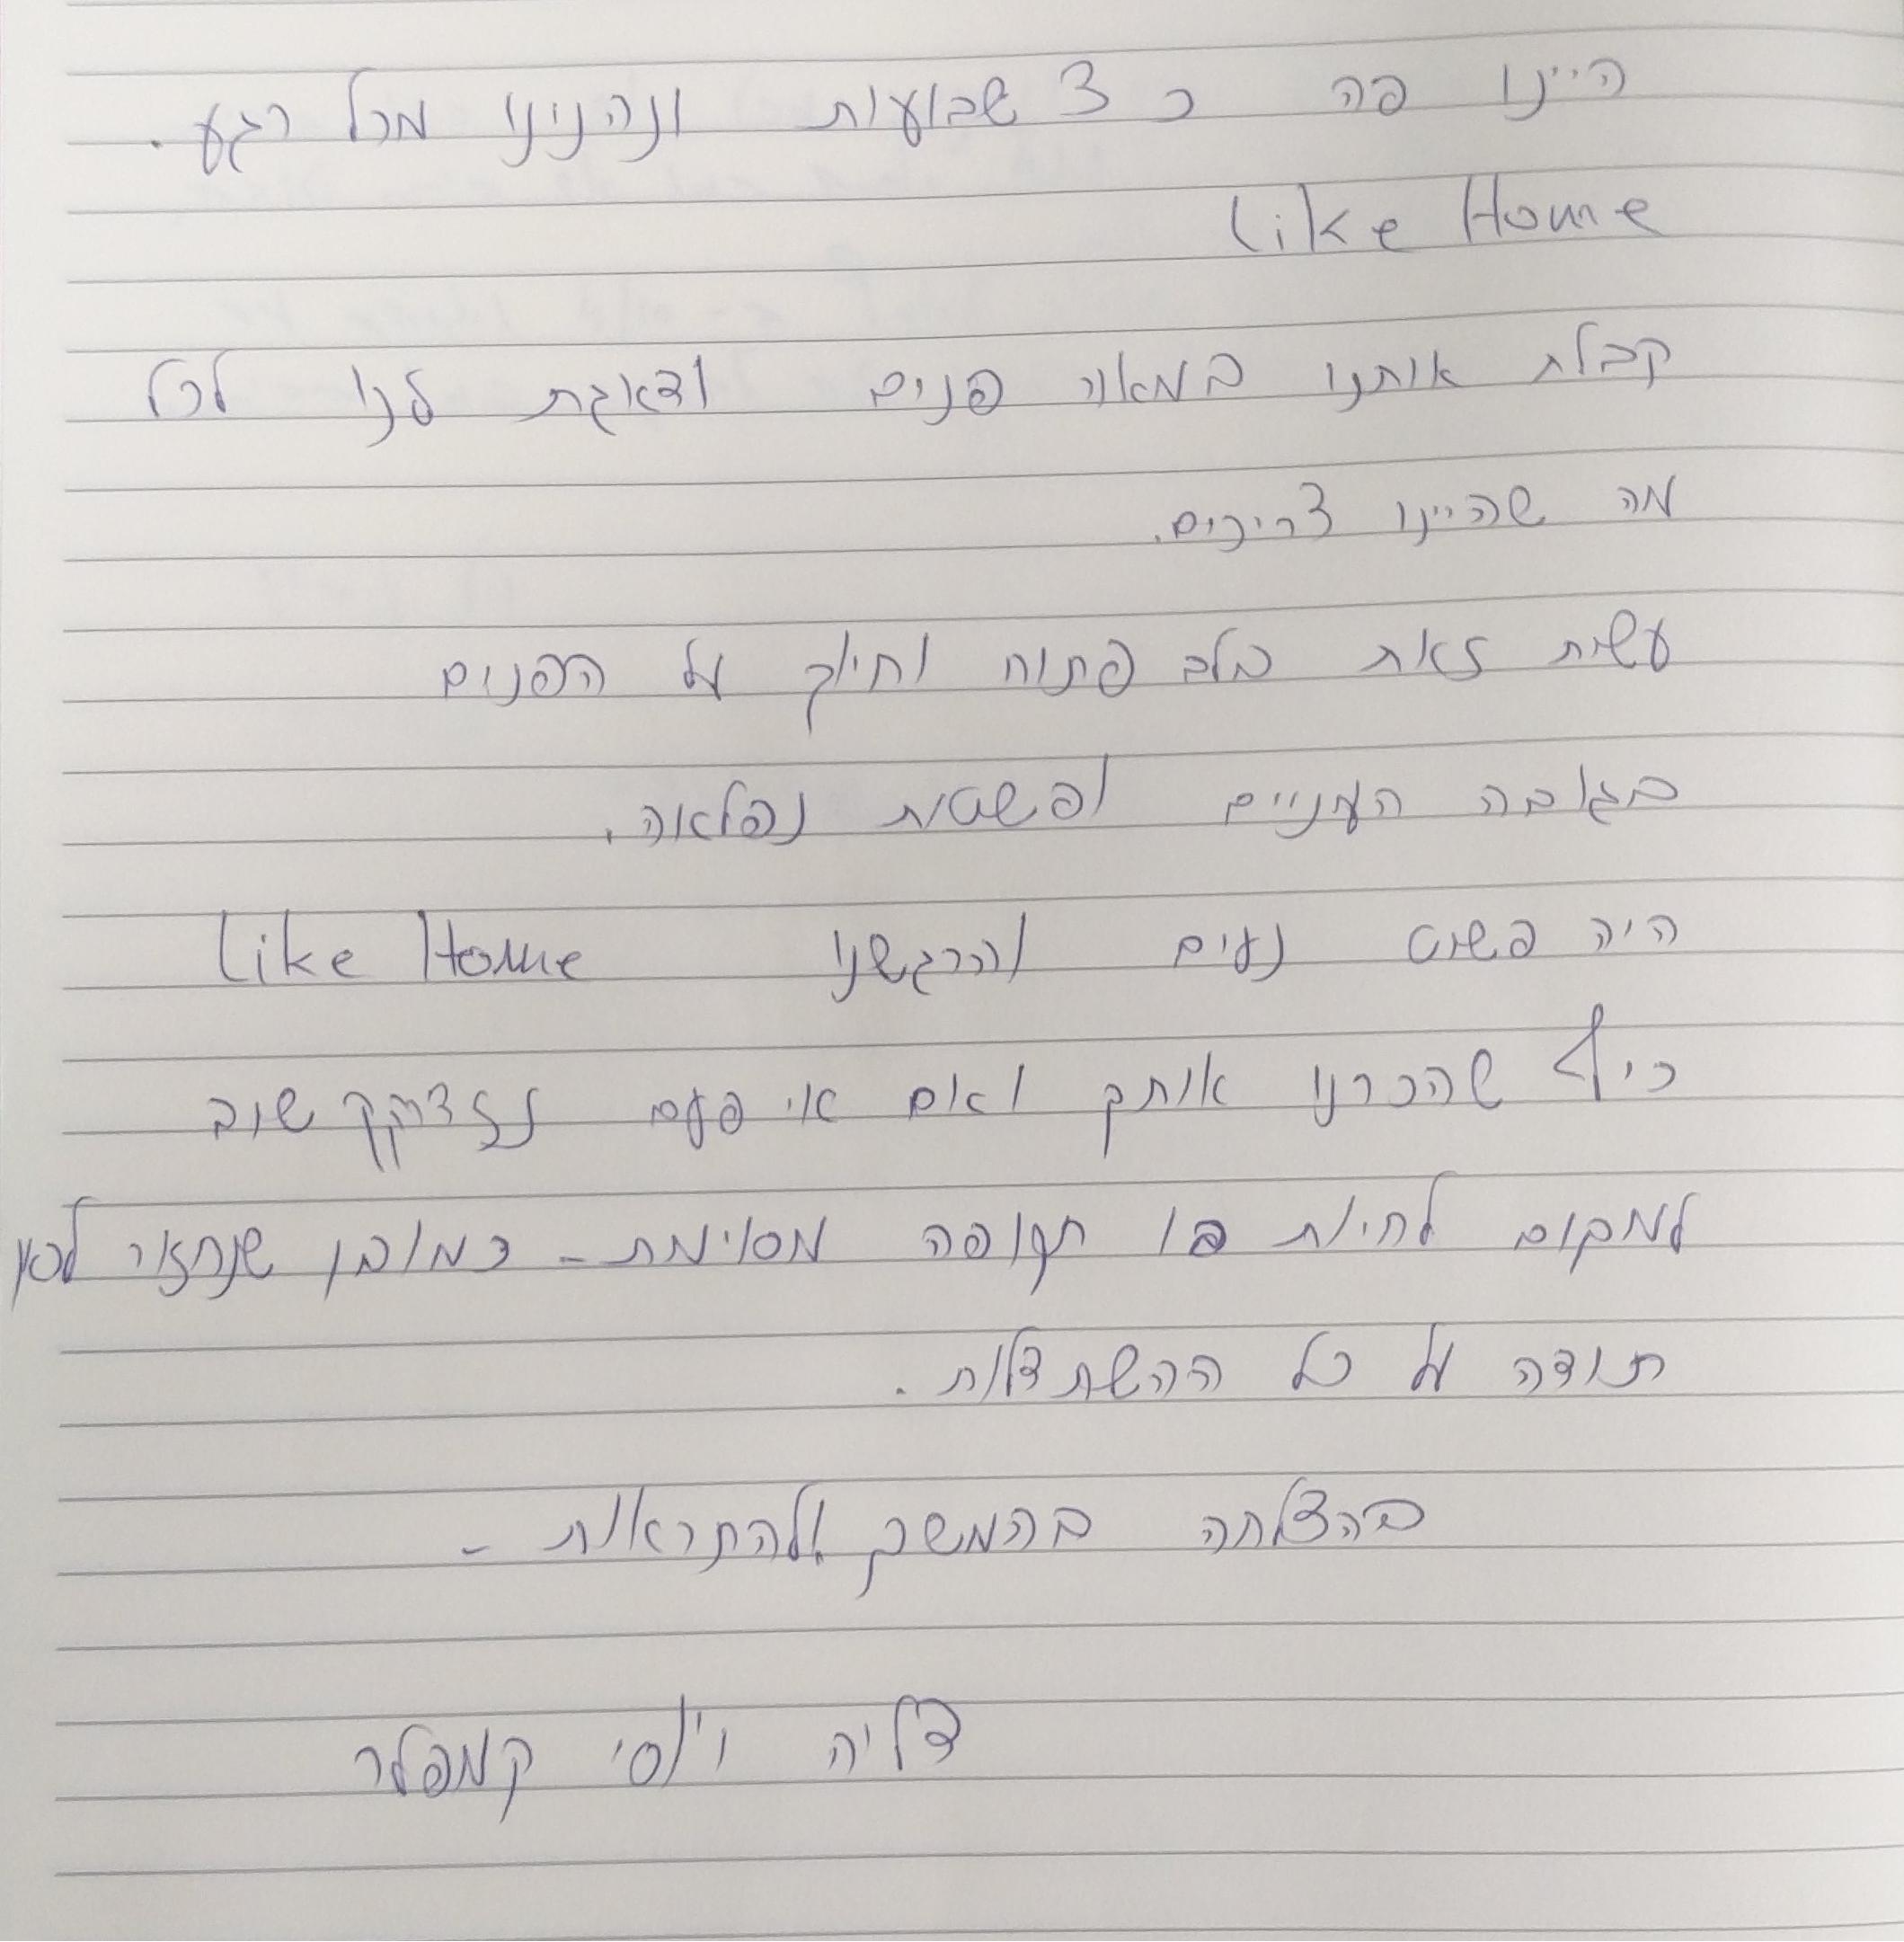 היינו פה כ 3 שבועות ונהנינו מכל רגע.
Like Home
קבלת אותנו במאור פנים ודאגת לנו לכל
מה שהיינו צריכים.
עשית זאת בלב פתוח וחיוך על הפנים
בגובה העניים ופשטות נפלאה.
היה פשוט נעים והרגשנו Like Home
כיף שהכרנו אותך ואם אי פעם נזדקק שוב
למקום לחיות בו תקופה מסוימת - כמובן שנחזור לכאן
תודה על כל ההשתדלות.
בהצלחה בהמשך ולהתראות -
דליה ויוסי קמפלר